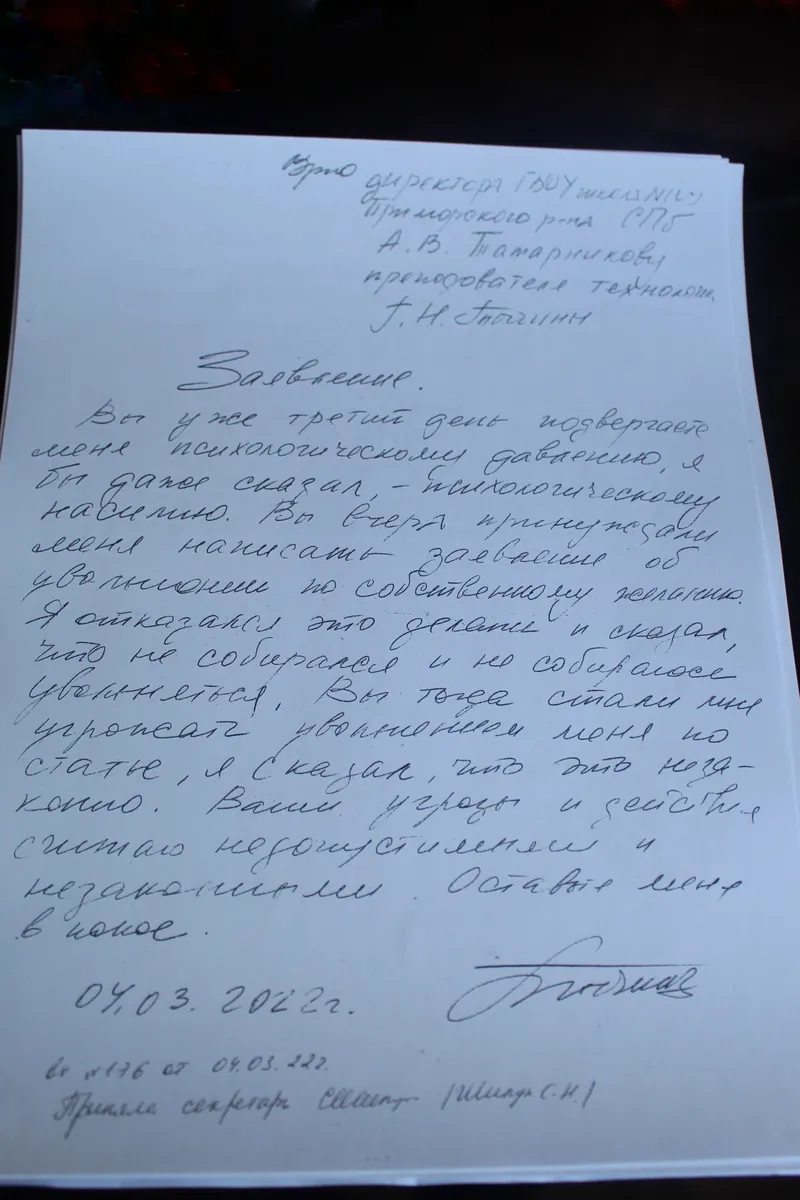 Врио директора ГБОУ школа №
Приморского р-на СПб
А. В. Татарникову
преподавателя технологии.
Г. Н. Тычини
Заявление.
Вы уже третий день подвергаете
меня психологическому давлению, я
бы даже сказал, – психологическому
насилию. Вы вчера принуждали
меня написать заявление об
увольнении по собственному желанию.
Я отказался это делать и сказал,
что не собирался и не собираюсь
увольняться. Вы тогда стали мне
угрожать увольнением меня по
статье, я сказал, что это неза-
конно. Ваши угрозы и действия
считаю недопустимыми и
незаконными. Оставьте меня
в покое.
04.03. 2022г.
вх №176 от 04.03.22г.
Приняла секретарь